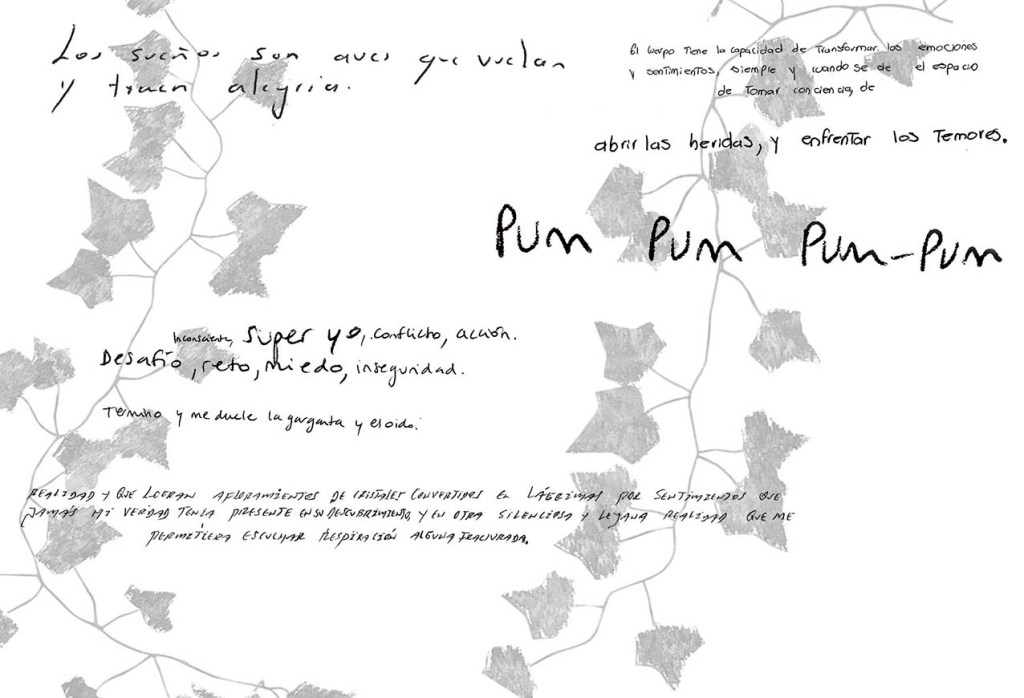 Los sueños son aves que vuelan
y traen alegria.
El cuerpo tiene la capacidad de transformar las emociones
y sentimientos, siempre y cuando se de el espacio
de tomar conciencia, de
abrir las heridas, y enfrentar los temores.
Pum Pum Pum-Pum
Inconsciente, super yo, conflicto, acción.
Desafío, reto, miedo, inseguridad.
Termino y me duele la garganta y el oido.
REALIDAD Y QUE LOGRAN AFLORAMIENTOS DE CRISTALES CONVERTIDOS EN LÁGRIMAS POR SENTIMIENTOS QUE
JAMÁS MI VERDAD TENIA PRESENTE EN SU DESCUBRIMIENTO, Y EN OTRA SILENCIOSA Y LEJANA REALIDAD QUE ME
PERMITIERA ESCUCHAR RESPIRACIÓN ALGUNA FRACTURADA.